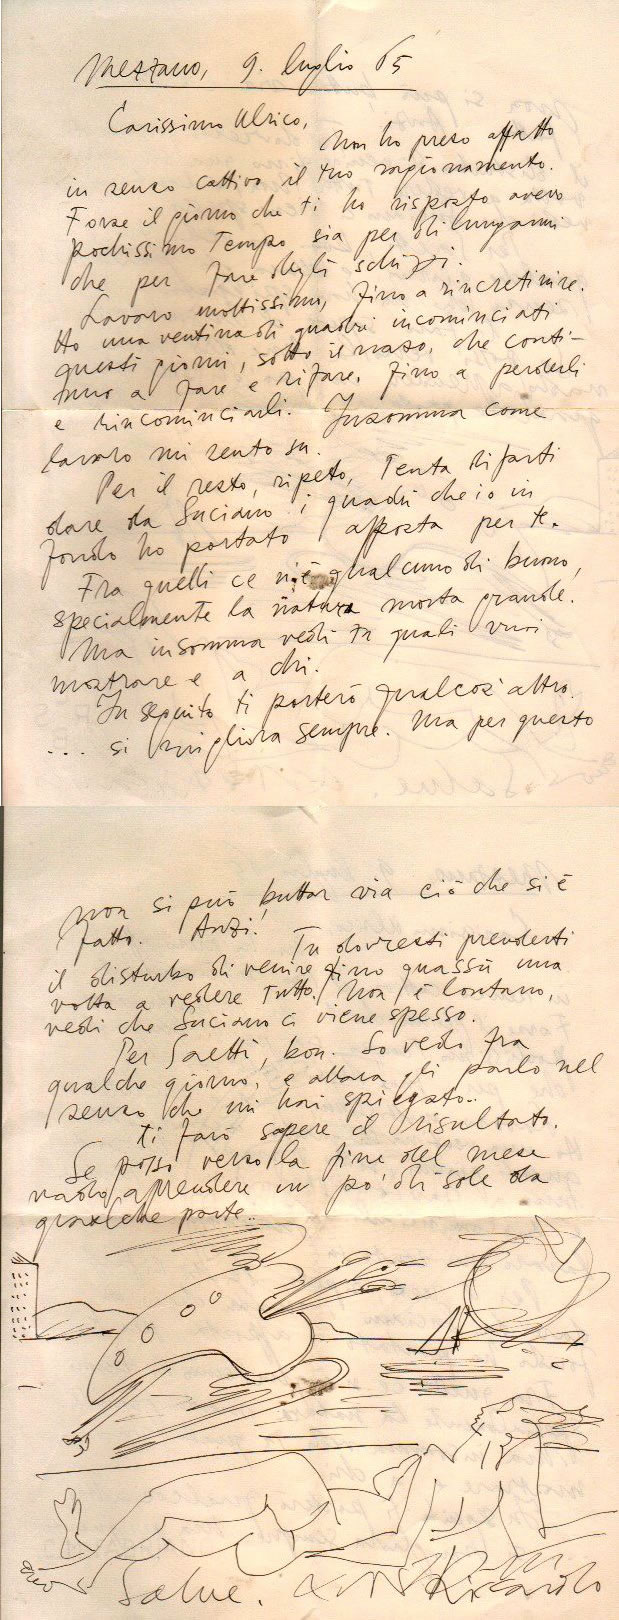 Mezzano, 9. luglio 65
Carissimo Ulrico,
Non ho preso affatto
in senso cattivo il tuo ragionamento.
Forse il giorno che ti ho risposto avevo
pochissimo Tempo sia per dilungarmi
che per fare degli schizzi.
Lavoro moltissimo, fino a rincretinire.
Ho una ventina di quadri incominciati
questi giorni, sotto il naso, che conti-
nuo a fare e rifare, fino a perderli
e rincominciarli. Insomma come
lavoro mi sento su.
Per il resto, ripeto, Tenta di farti
dare da Luciano i quadri che io in
fondo ho portato apposta per te.
Fra quelli ce n'è qualcuno di buono,
specialmente la natura morta grande.
Ma insomma vedi tu quali vuoi
mostrare e a chi.
In seguito ti porterò qualcos'altro.
... si migliora sempre. Ma per questo
non si può buttar via ciò che si è
fatto. Anzi.
Tu dovresti prenderti
il disturbo di venire fino quassù una
volta a vedere Tutto. Non è lontano,
vedi che Luciano ci viene spesso.
Per Saetti, bon. Lo vedo fra
qualche giorno, e allora gli parlo nel
senso che mi hai spiegato..
ti farò sapere il risultato.
Se posso verso la fine del mese
vado a prendere un po' di sole da
qualche parte..
Salve.